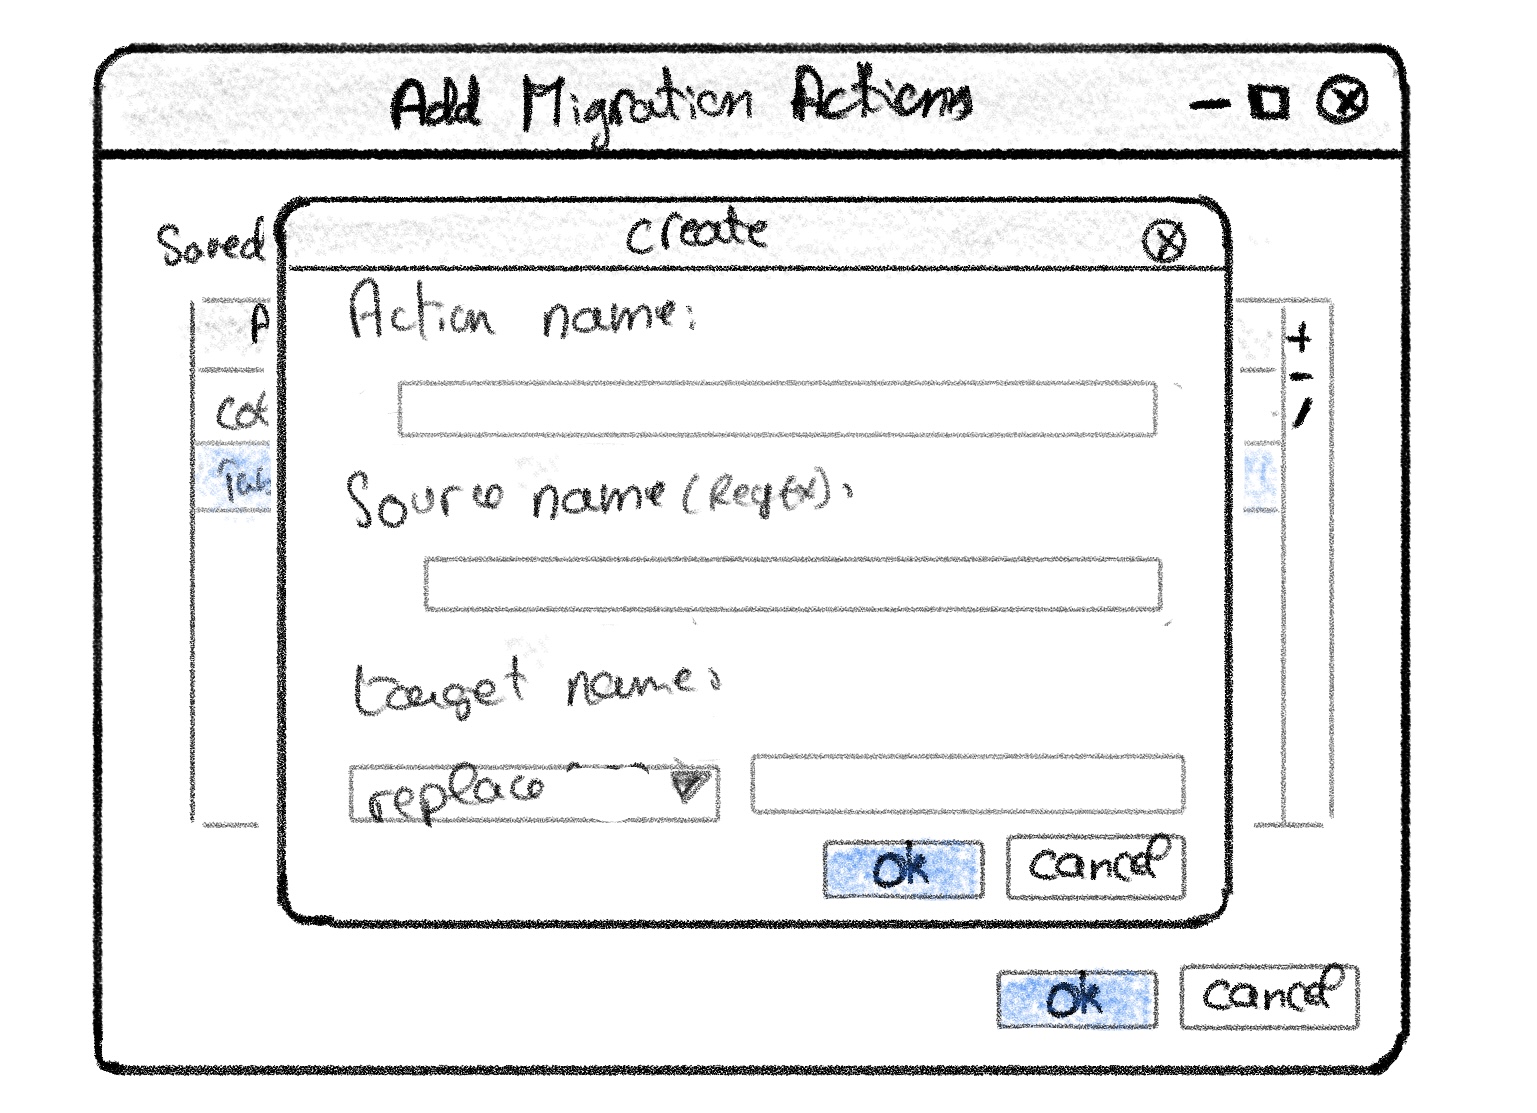 Add Migration Actions
Saved
create
Action name:
Source name (RegEx):
target name:
replace
Ok cancel
Ok cancel